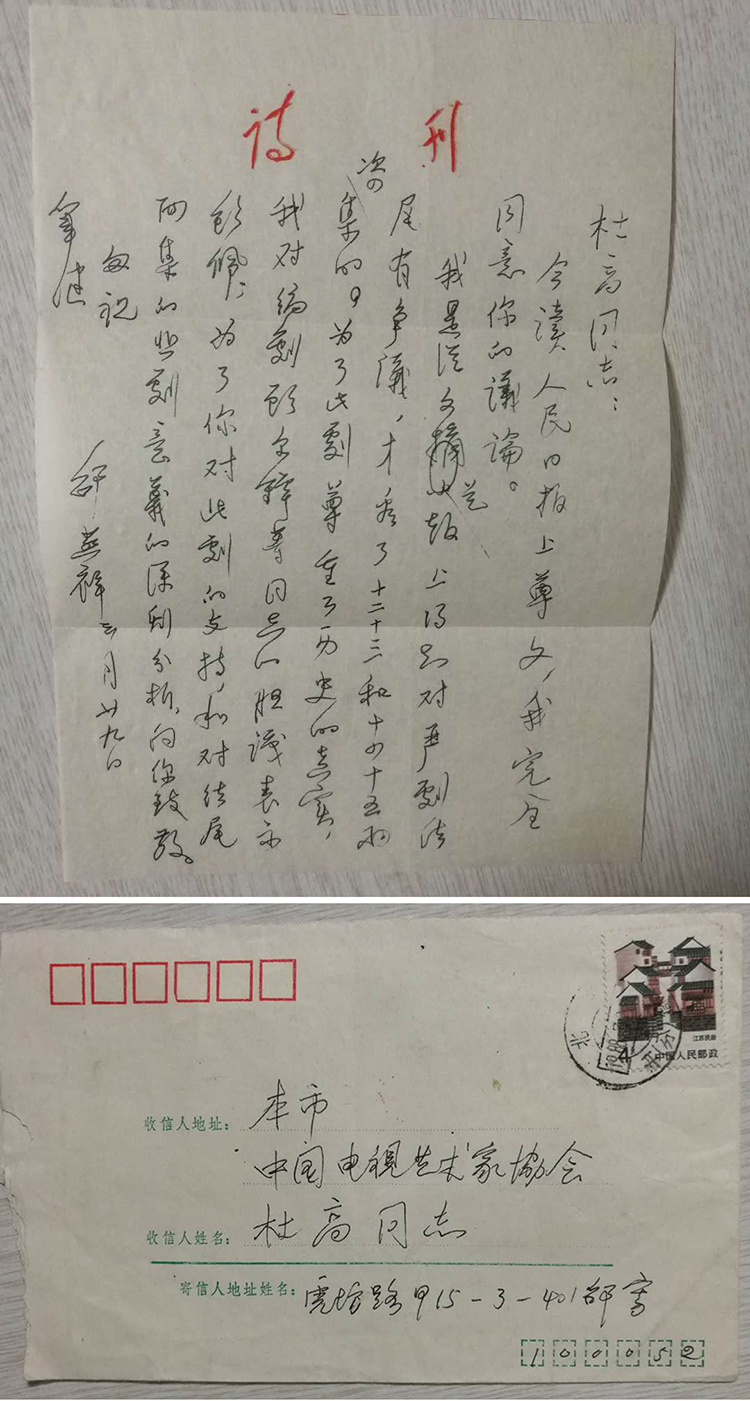 诗刊
杜高同志：
今读人民日报上尊文，我完全
同意你的议论。
我是从文摘小报上得知对严剧结
尾有争议，才看了十二十三和十四十五两
次集的。为了此剧尊重了历史的真实，
我对编剧顾尔镡等同志的胆识表示
钦佩；为了你对此剧的支持，和对结尾
两集的悲剧意义的深刻分析，向你致敬。
匆祝
笔健
邵燕祥 三月廿九日
江苏民居
4
中国人民邮政
北
收信人地址：本市
中国电视艺术家协会
收信人姓名：杜高同志
寄信人地址姓名：虎坊路甲15-3-401邵寄
100052